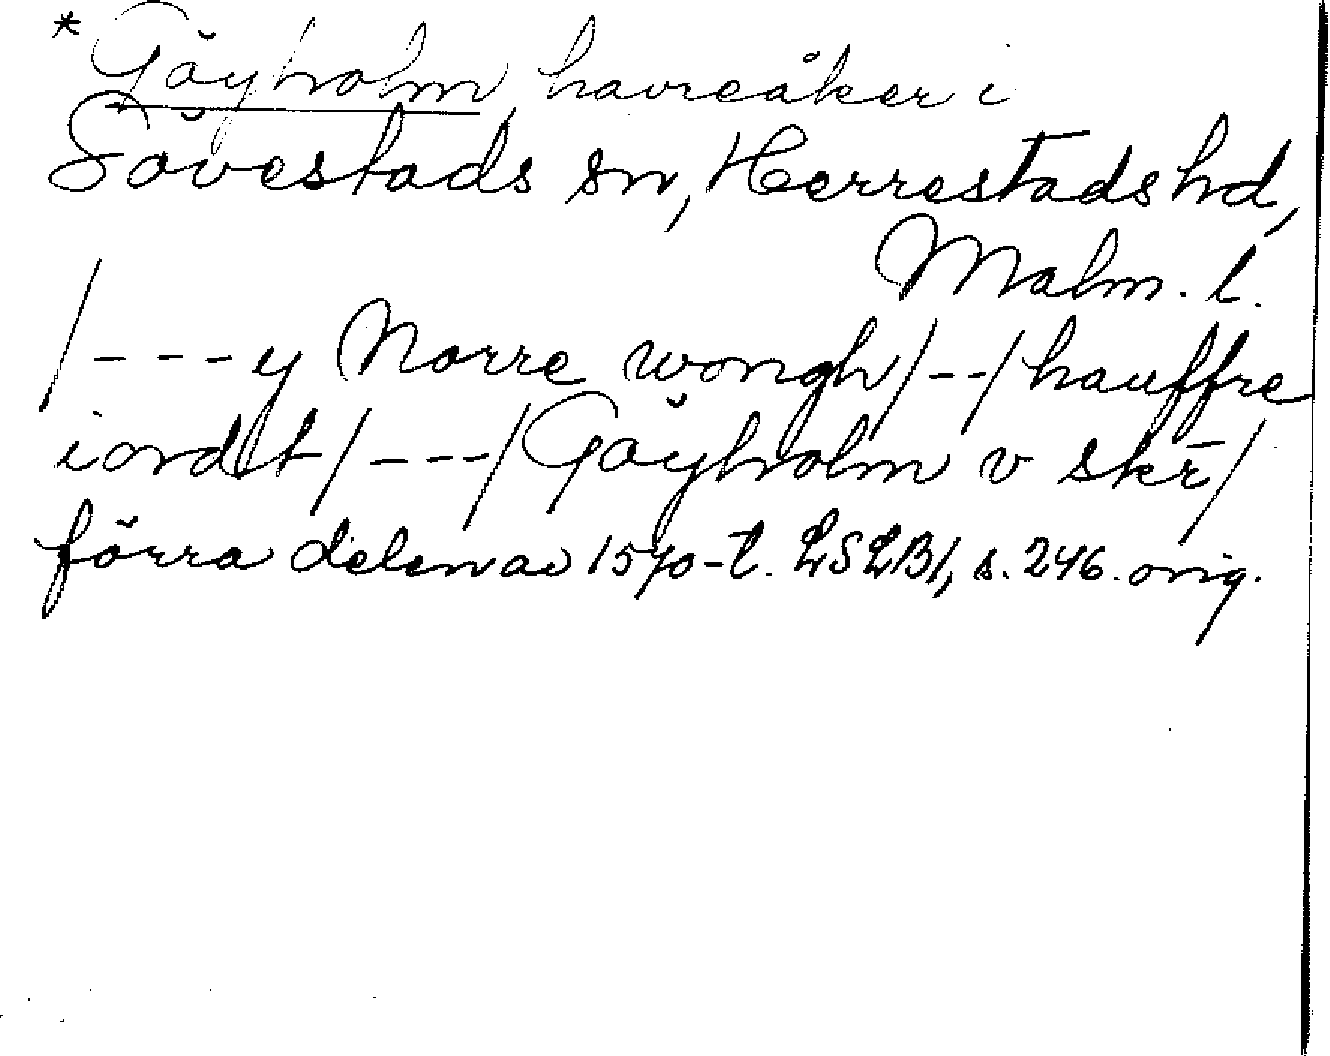 * Göyholm, havreåker i
Sövestads sn, Herrestads hd,
Malm. l.
/---y Norre wongh/--/hauffre
iordt/---/Göyholm v skr̄/
förra delen av 1570-t. LSLB1, s. 246. orig.